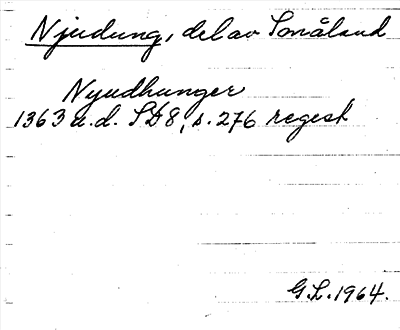 Njudung, del av Småland
Nyudhunger
1363 u.d. SD 8, s. 276 regest
G.L. 1964.